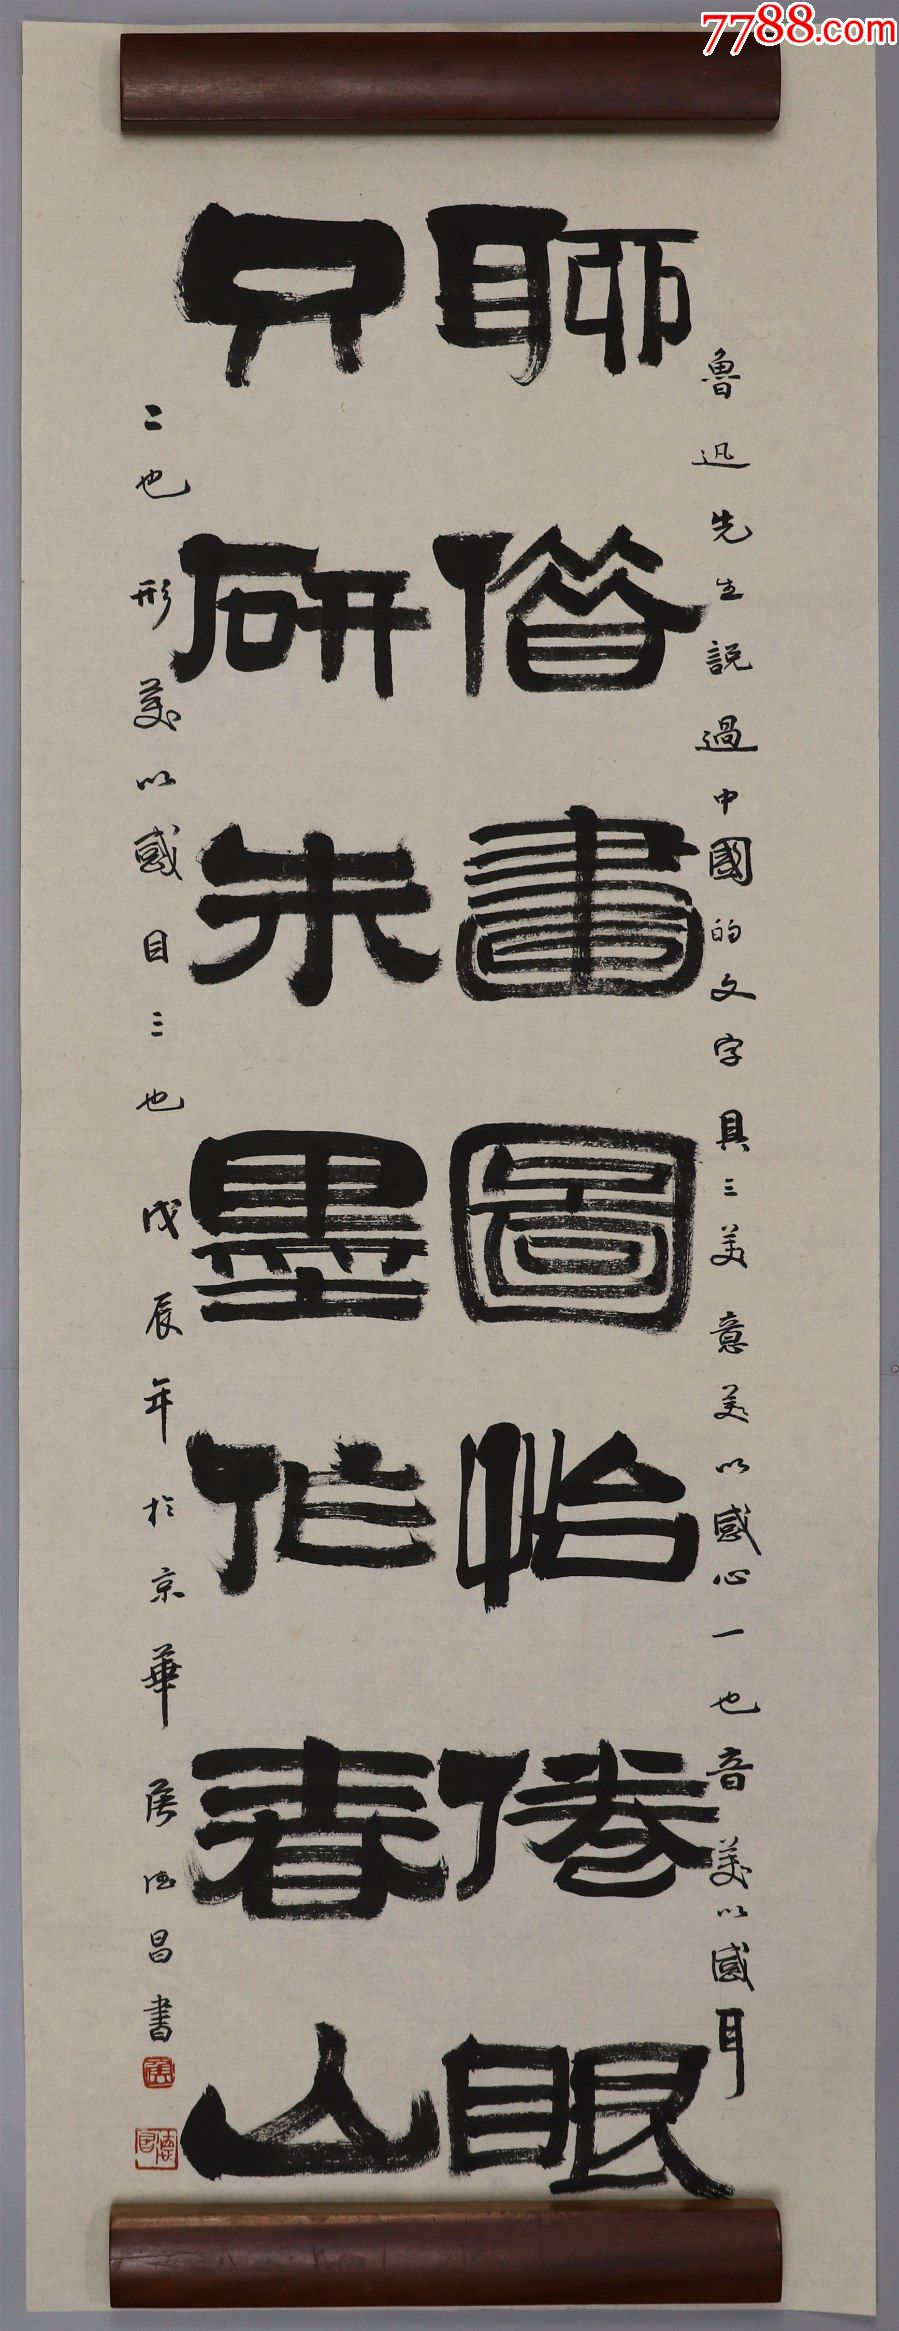 7788.com
魯迅先生説過中國的文字具三美意美以感心一也音美以感耳
聊借畫圖怡倦眼
只研朱墨作春山
二也形美以感目三也戊辰年於京華侯德昌書